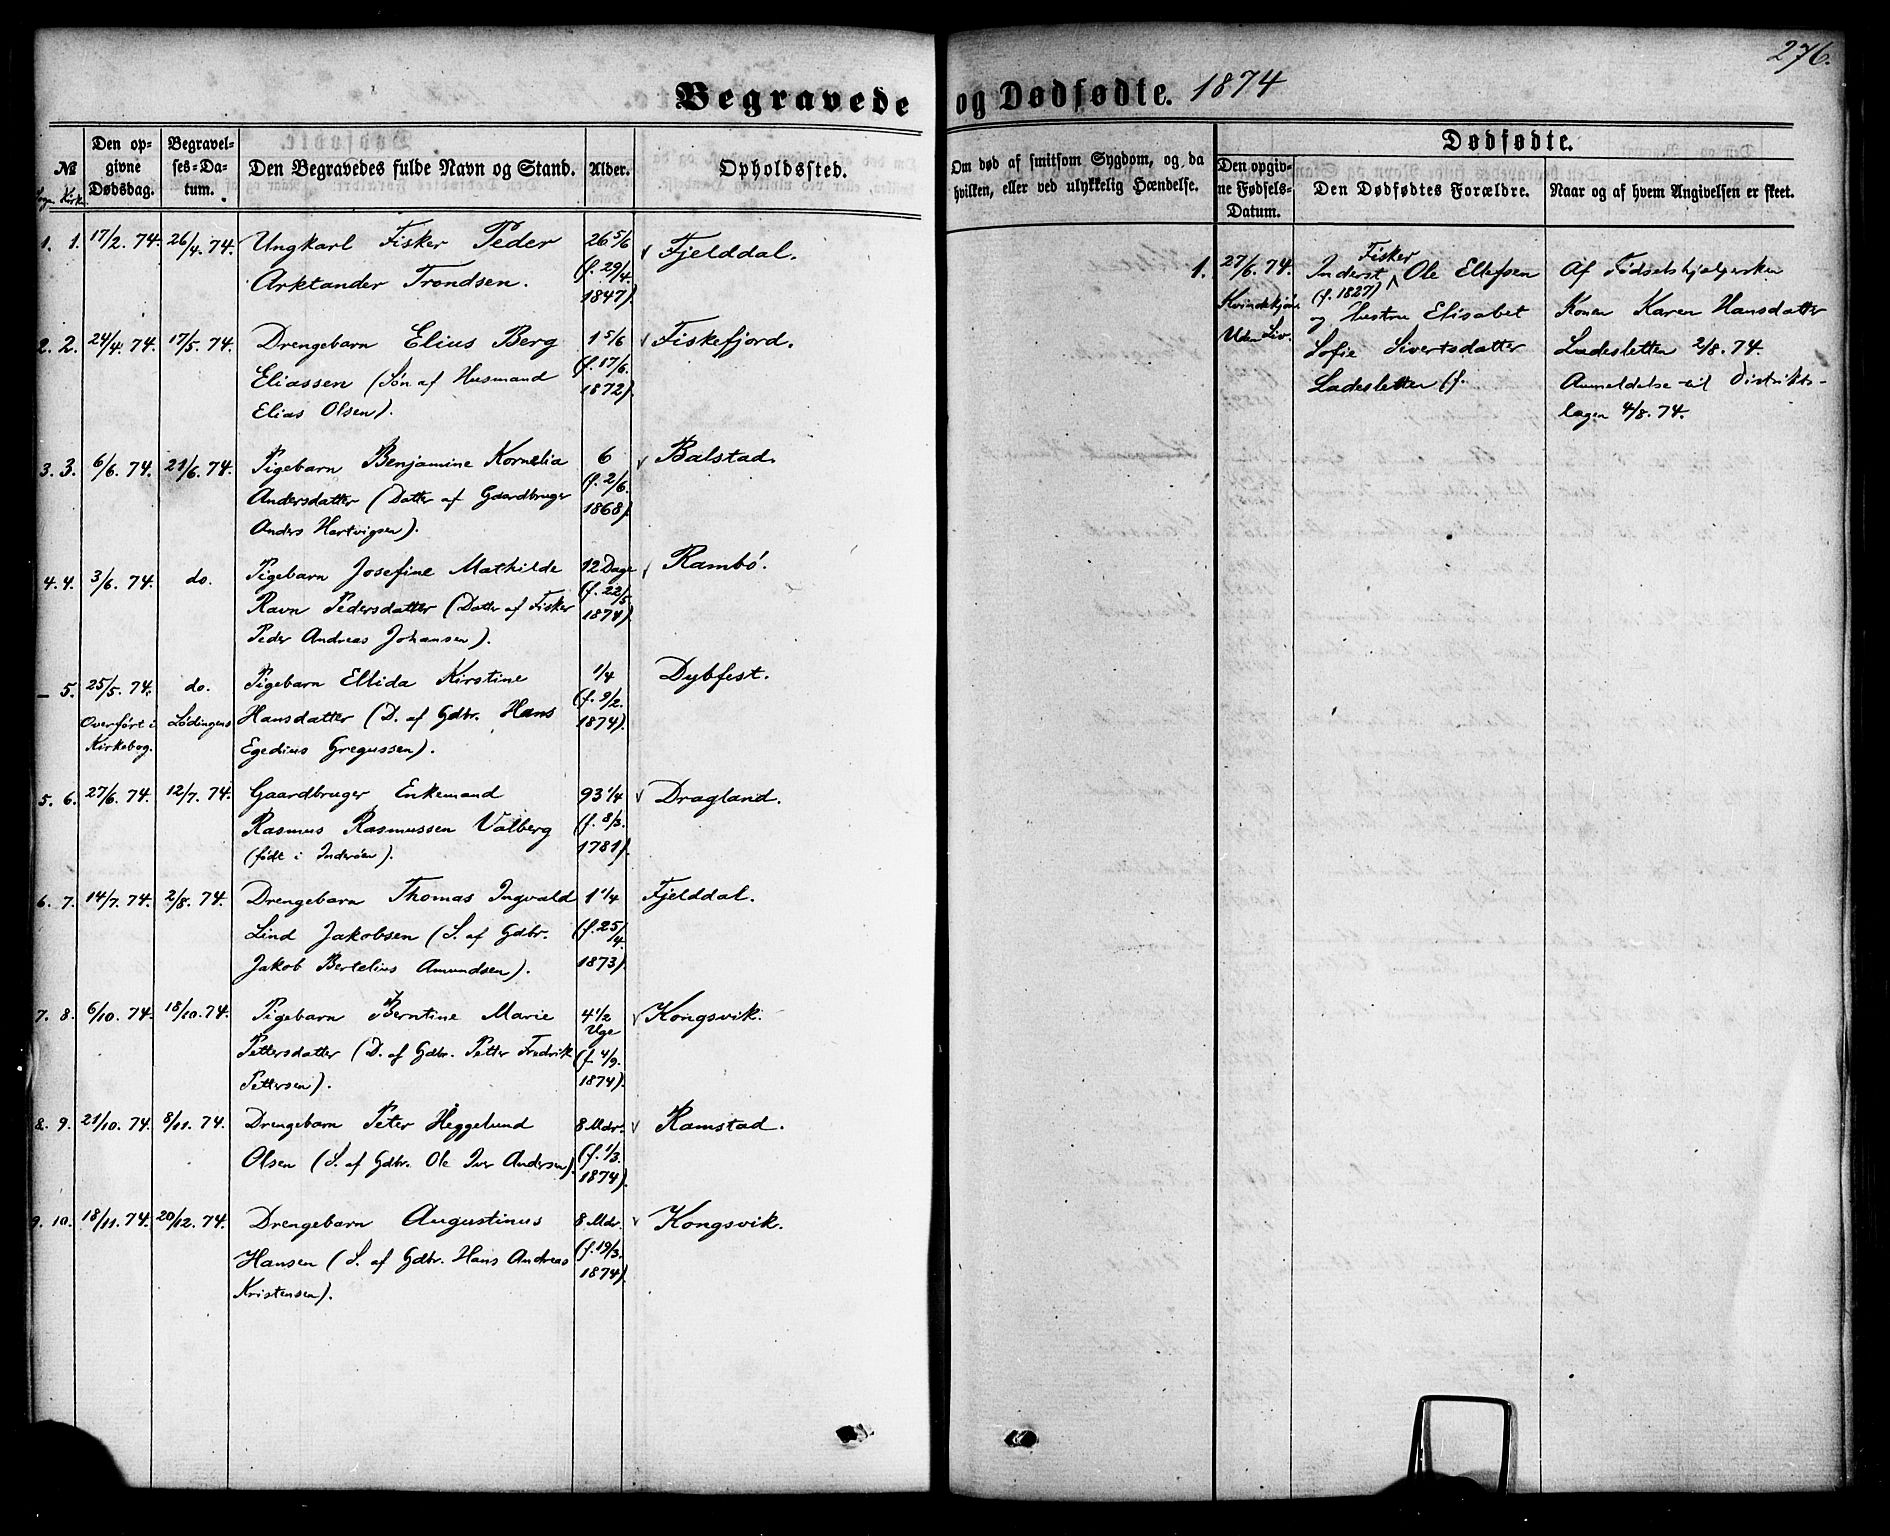 276.
Begravede og Dødfødte. 1874
№
Sogn Kirk
Den op-
givne
Dødsdag.
Begravel-
ses-Da-
tum.
Den Begravedes fulde Navn og Stand.
Alder.
Opholdssted.
Om død af smitsom Sygdom, og da
hvilken, eller ved ulykkelig Hændelse.
Dødfødte.
Den opgiv-
ne Fødsels-
Datum.
Den Dødfødtes Forældre.
Naar og af hvem Angivelsen er skeet.
1. 1. 17/2. 74. 26/4. 74. Ungkarl Fisker Peder 26 5/6 Fjelddal.
Arktander Trondsen. (f. 29/4.
1847).
2. 2. 24/4. 74. 17/5. 74. Drengebarn Elius Berg 1 5/6 Fiskefjord.
Eliassen (Søn af Husmand (f. 17/6.
Elias Olsen). 1872).
3. 3. 6/6. 74. 21/6. 74. Pigebarn Benjamine Kornelia 6 Balstad.
Andersdatter (Datter af Gaardbruger (f. 2/6.
Anders Hartvigsen). 1868).
4. 4. 3/6. 74. do. Pigebarn Josefine Mathilde 12 Dage Rambø.
Ravn Pedersdatter (Datter af Fisker (f. 22/5
Peder Andreas Johansen). 1874).
– 5. 25/5. 74. do. Pigebarn Ellida Kirstine 1/4 Dybfest.
Overført i Lødingens Hansdatter (D. af Gdbr. Hans (f. 9/2.
Kirkebog. Egedius Gregussen). 1874).
5. 6. 27/6. 74. 12/7. 74. Gaardbruger Enkemand 93 1/4 Dragland.
Rasmus Rasmussen Valberg (f. 8/3.
(født i Inderøen). 1781).
6. 7. 14/7. 74. 2/8. 74. Drengebarn Thomas Ingvald 1 1/4 Fjelddal.
Lind Jakobsen (S. af Gdbr. (f. 25/4.
Jakob Bertelius Amundsen). 1873).
7. 8. 6/10. 74. 18/10. 74. Pigebarn Berntine Marie 4 1/2 Uge Kongsvik.
Pettersdatter (D. af Gdbr. Petter Fredrik (f. 4/9.
Pettersen). 1874).
8. 9. 21/10. 74. 8/11. 74. Drengebarn Peter Heggelund 8 Mdr. Ramstad.
Olsen (S. af Gdbr. Ole Iver Andersen). (f. 1/3.
1874).
9. 10. 18/11. 74. 20/12. 74. Drengebarn Augustinus 8 Mdr. Kongsvik.
Hansen (S. af Gdbr. Hans Andreas (f. 19/3.
Kristensen). 1874).
1. 27/6. 74.
Kvindekjøn
Uden Liv.
Fisker
Inderst Ole Ellefsen
(f. 1827)
og Hustru Elisabet
Sofie Sivertsdatter
Ladesletten (f.
Af Fødselshjælpersken
Konen Karen Hansdatter
Ladesletten 2/8. 74.
Anmeldelse til Distrikts-
lægen 4/8. 74.